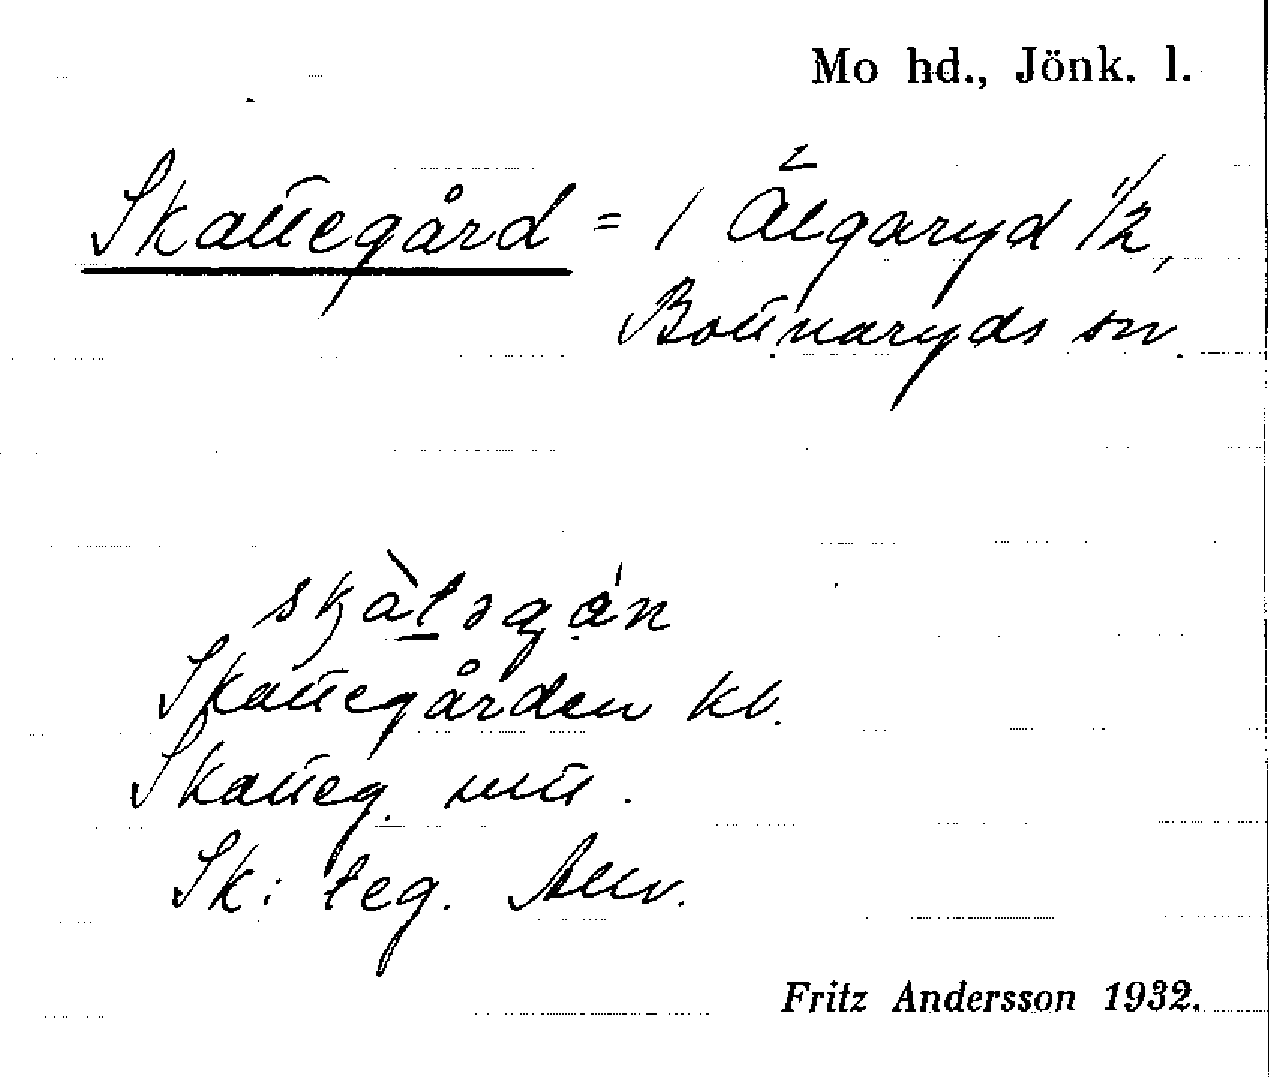 Mo hd., Jönk. l.
Skattegård = 1 Älgaryd 1/2,
Bottnaryds sn.
Skattegården kb.
Skatteg.
Sk:
Fritz Andersson 1932.